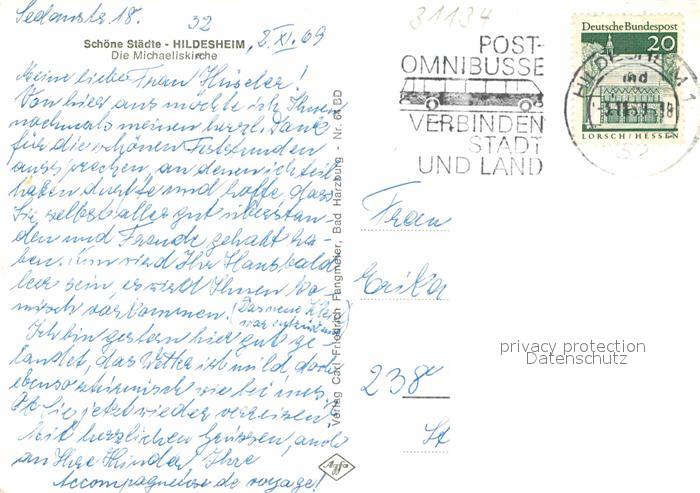 Sedanstr. 18.
32
2. XI. 69
Schöne Städte - HILDESHEIM
Die Michaeliskirche
Meine liebe Frau Hüseler!
Von hier aus möchte ich Ihnen
nochmals meinen herzl. Dank
für die schönen Feststunden
aussprechen, an denen ich teil
haben durfte und hoffe, dass
Sie selbst alles gut überstan-
den und Freude gehabt ha-
ben. Nun wird Ihr Haus bald
leer sein, es wird Ihnen ko
misch vorkommen. (Das neue
war
Ich bin gestern hier gut ge-
landet, das Wetter ist mild, doch
ebenso stürmisch wie bei uns.
Ob Sie jetzt wieder verreisen
Mit herzlichen Grüssen, auch
an Ihre Kinder! Ihre
Accompagneuse de voyage!
Verlag Carl Friedrich Fangmeier, Bad Harzburg - Nr. BD
Agfa
31134
POST-
OMNIBUSSE
VERBINDEN
STADT
UND LAND
Deutsche Bundespost
20
LORSCH/HESSEN
HILDESHEIM 1
32
Frau
Erika
238
St
privacy protection
Datenschutz